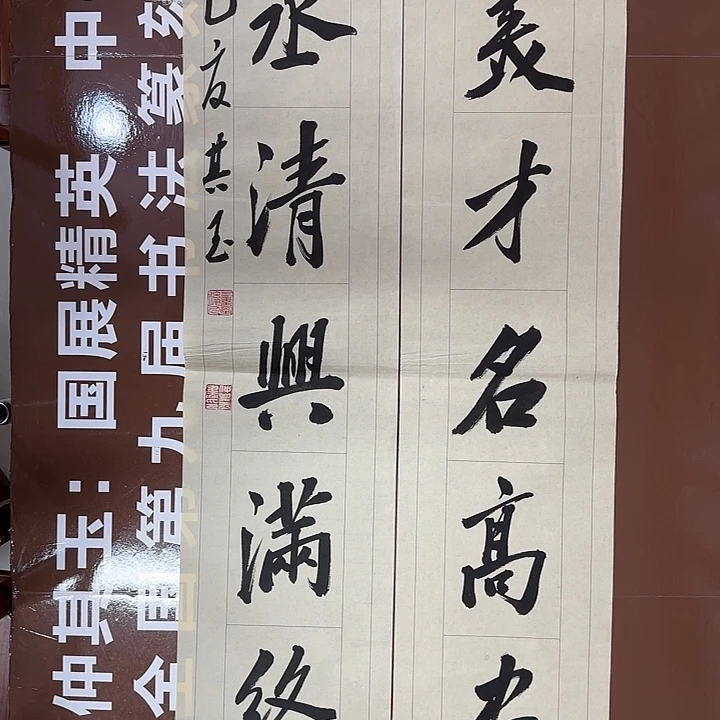 美才名高
丞清興滿終
亥其玉
仲其玉：国展精英 中
全国第九届书法篆刻